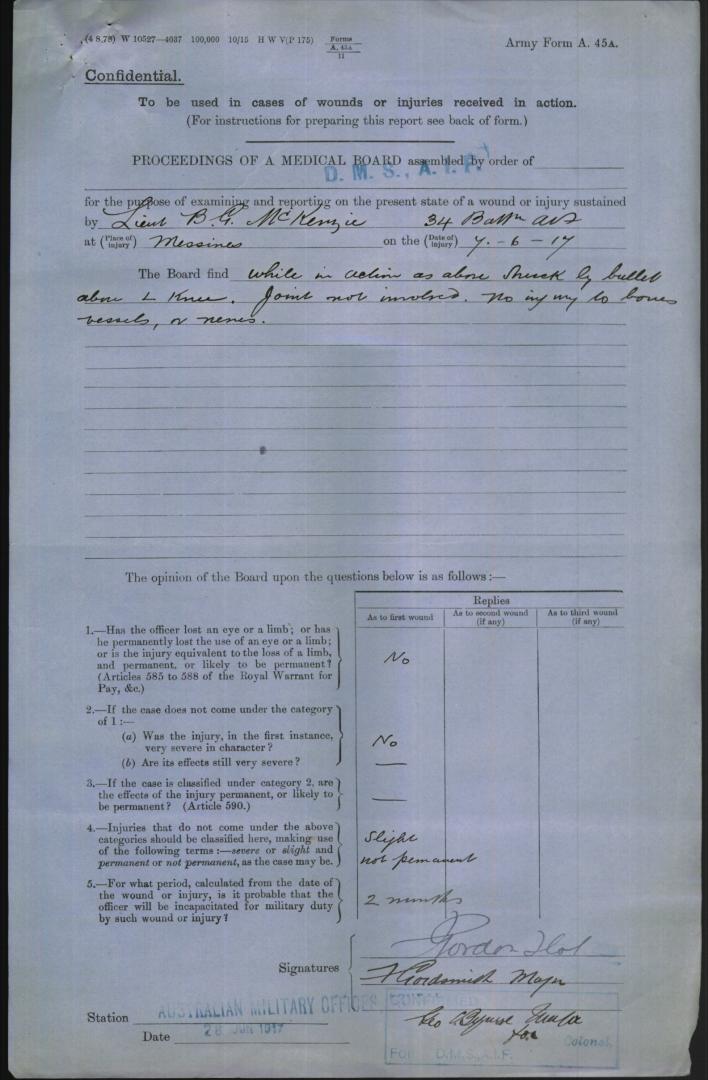 (4 8.78) W 10527—4037 100,000 10/15 H W V(P 175) Forms A. 45A 11
Army Form A. 45A.
Confidential.
To be used in cases of wounds or injuries received in action.
(For instructions for preparing this report see back of form.)
PROCEEDINGS OF A MEDICAL BOARD assembled by order of
D. M. S., A. I. F.
for the purpose of examining and reporting on the present state of a wound or injury sustained
by Lieut B. G. McKenzie 34 Battn
at (Place of injury) Messines on the (Date of injury) 7.-6-17
The Board find while in action as above struck by bullet
above L Knee. Joint not involved. No injury to bones
vessels, or nerves.
The opinion of the Board upon the questions below is as follows:—
Replies
As to first wound
As to second wound (if any)
As to third wound (if any)
1.—Has the officer lost an eye or a limb; or has
he permanently lost the use of an eye or a limb;
or is the injury equivalent to the loss of a limb,
and permanent, or likely to be permanent?
(Articles 585 to 588 of the Royal Warrant for
Pay, &c.)
No
2.—If the case does not come under the category
of 1:—
(a) Was the injury, in the first instance,
very severe in character?
No
(b) Are its effects still very severe?
—
3.—If the case is classified under category 2, are
the effects of the injury permanent, or likely to
be permanent? (Article 590.)
—
4.—Injuries that do not come under the above
categories should be classified here, making use
of the following terms:—severe or slight and
permanent or not permanent, as the case may be.
Slight
not permanent
5.—For what period, calculated from the date of
the wound or injury, is it probable that the
officer will be incapacitated for military duty
by such wound or injury?
2 months
Gordon
Signatures
Major
Station
AUSTRALIAN MILITARY OFFICES,
28 JUN 1917
Date
CONFIRMED
Geo
for Colonel,
FOR D.M.S., A.I.F.